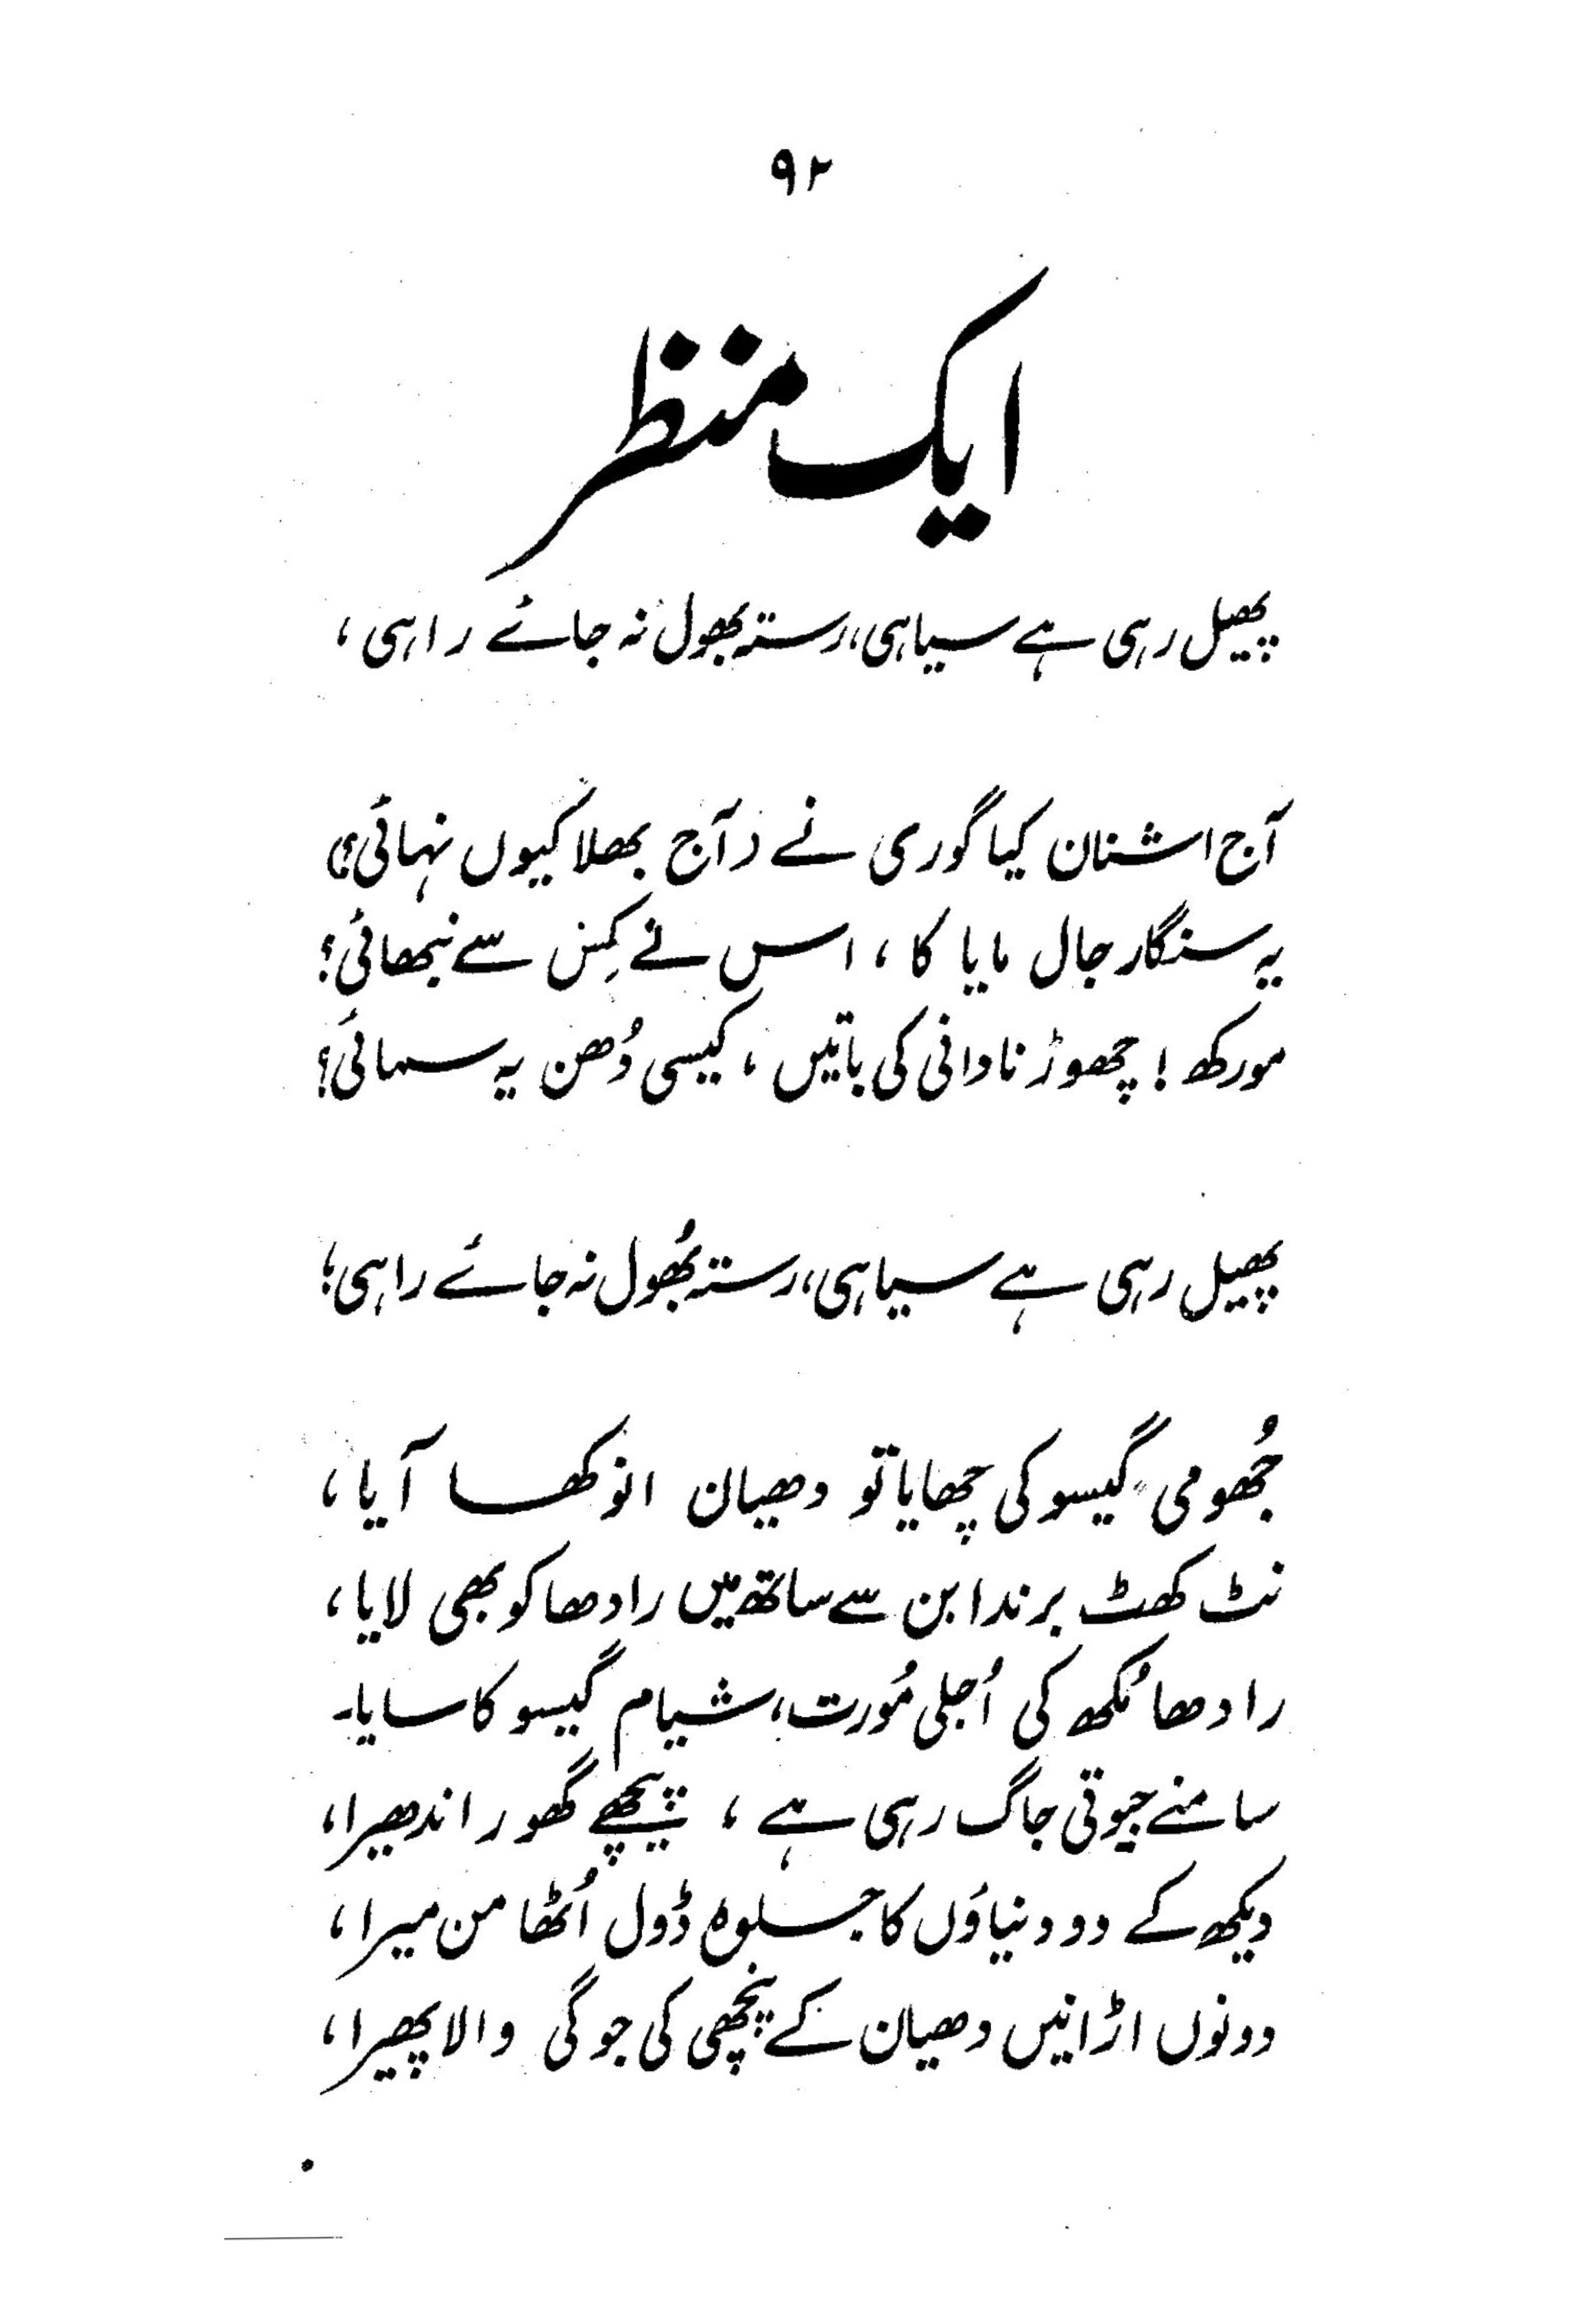 ۹۲
ایک منظر
پھیل رہی ہے سیاہی، رستہ بھول نہ جائے راہی،
آج اشنان کیا گوری نے (آج بھلا کیوں نہائی؟)
یہ سنگار جال مایا کا، اس نے کِس سے نبھائی؟
مورکھ! چھوڑ نادانی کی باتیں، کیسی دُھن یہ سمائی؟
پھیل رہی ہے سیاہی، رستہ بھُول نہ جائے راہی؛
جُھومی گیسو کی چھایا تو دھیان انوکھا آیا،
نٹ کھٹ برندابن سے ساتھ میں رادھا کو بھی لایا،
رادھا مُکھ کی اُجلی مُورت، شیام گیسو کا سایا۔
سامنے جیوتی جاگ رہی ہے، پیچھے گھور اندھیرا،
دیکھ کے دو دنیاؤں کا جلوہ ڈول اُٹھا من میرا،
دونوں اڑانیں دھیان کے پنچھی کی جوگی والا پھیرا،